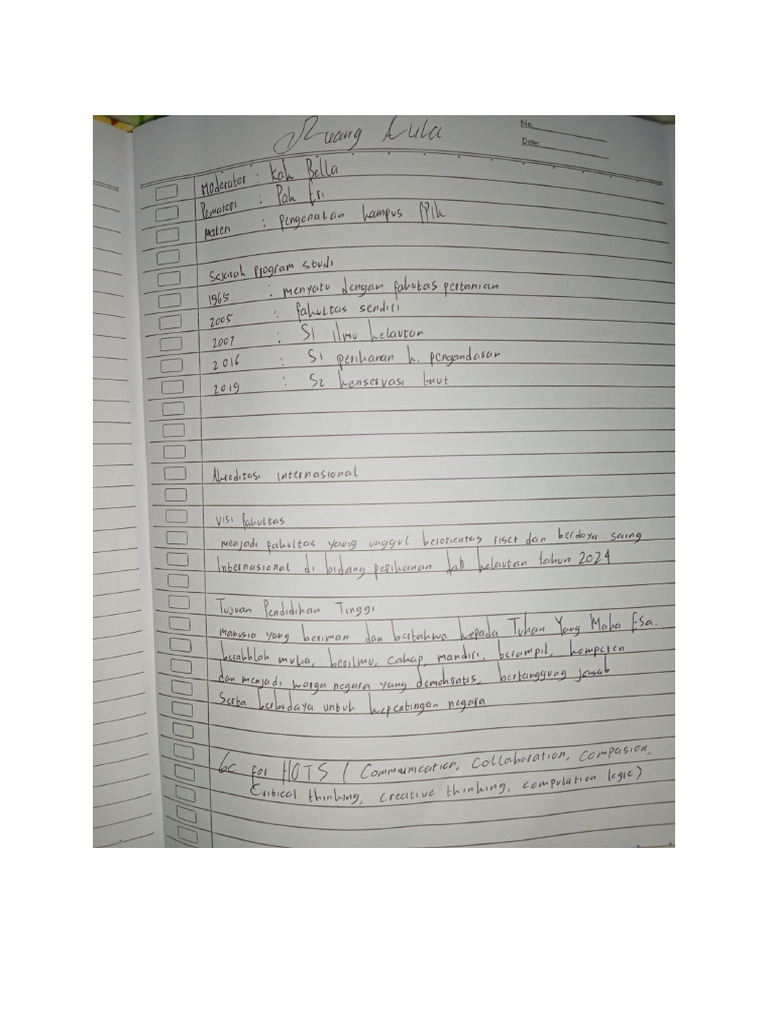 Ruang Lula
No.
Date:
Moderator : Kak Bella
Pemateri : Pak Eri
Materi : pengenalan kampus FPIK
Sejarah program studi
1965 : menyatu dengan fakutas pertanian
2005 : fakultas sendiri
2007 : S1 ilmu kelautan
2016 : S1 perikanan k. pengandaran
2019 : S2 konservasi laut
Akreditasi internasional
Visi fakultas
menjadi fakultas yang unggul berorientas riset dan berdaya saing
Internasional di bidang perikanan dan kelautan tahun 2024
Tujuan Pendidikan Tinggi
manusia yang beriman dan bertakwa kepada Tuhan Yang Maha Esa.
berakhlak mulia, berilmu, cakap, mandiri, berampil, kompeten
dan menjadi warga negara yang demokratis, bertanggung jawab
Serta berbudaya untuk kepentingan negara
6c for HOTS (Communication, Collaboration, Compasion,
Critical thinking, creative thinking, computation logic)